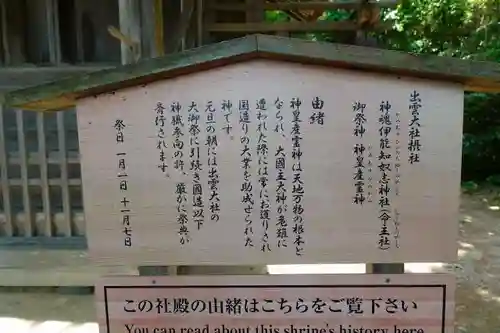 出雲大社摂社
神魂伊能知奴志神社(命主社)
御祭神 神皇産霊神
由緒
神皇産霊神は天地万物の根本と
なられ、大國主大神が危難に
遭われた際には常にお護りされ
國造りの大業を助成せられた
神です。
元旦の朝には出雲大社の
大御祭に引続き國造以下
神職参向の許、厳かに祭典が
斉行されます。
祭日 一月一日 十一月七日
この社殿の由緒はこちらをご覧下さい
You can read about this shrine's history here